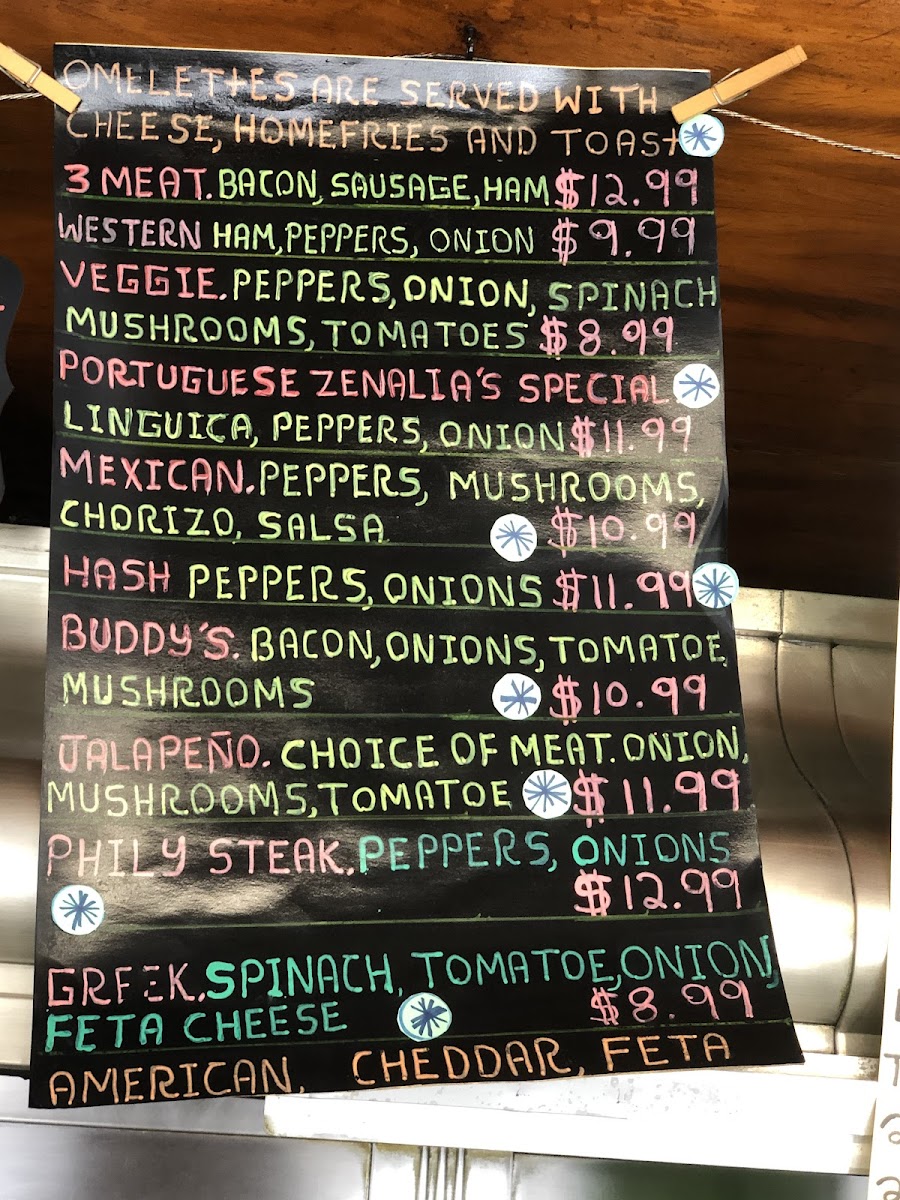 OMELETTES ARE SERVED WITH
CHEESE, HOMEFRIES AND TOAST
3 MEAT. BACON, SAUSAGE, HAM $12.99
WESTERN HAM, PEPPERS, ONION $9.99
VEGGIE. PEPPERS, ONION, SPINACH
MUSHROOMS, TOMATOES $8.99
PORTUGUESE ZENALIA'S SPECIAL
LINGUICA, PEPPERS, ONION $11.99
MEXICAN. PEPPERS, MUSHROOMS,
CHORIZO, SALSA $10.99
HASH PEPPERS, ONIONS $11.99
BUDDY'S. BACON, ONIONS, TOMATOE,
MUSHROOMS $10.99
JALAPEÑO. CHOICE OF MEAT. ONION,
MUSHROOMS, TOMATOE $11.99
PHILY STEAK. PEPPERS, ONIONS
$12.99
GREEK. SPINACH, TOMATOE, ONION,
FETA CHEESE $8.99
AMERICAN, CHEDDAR, FETA